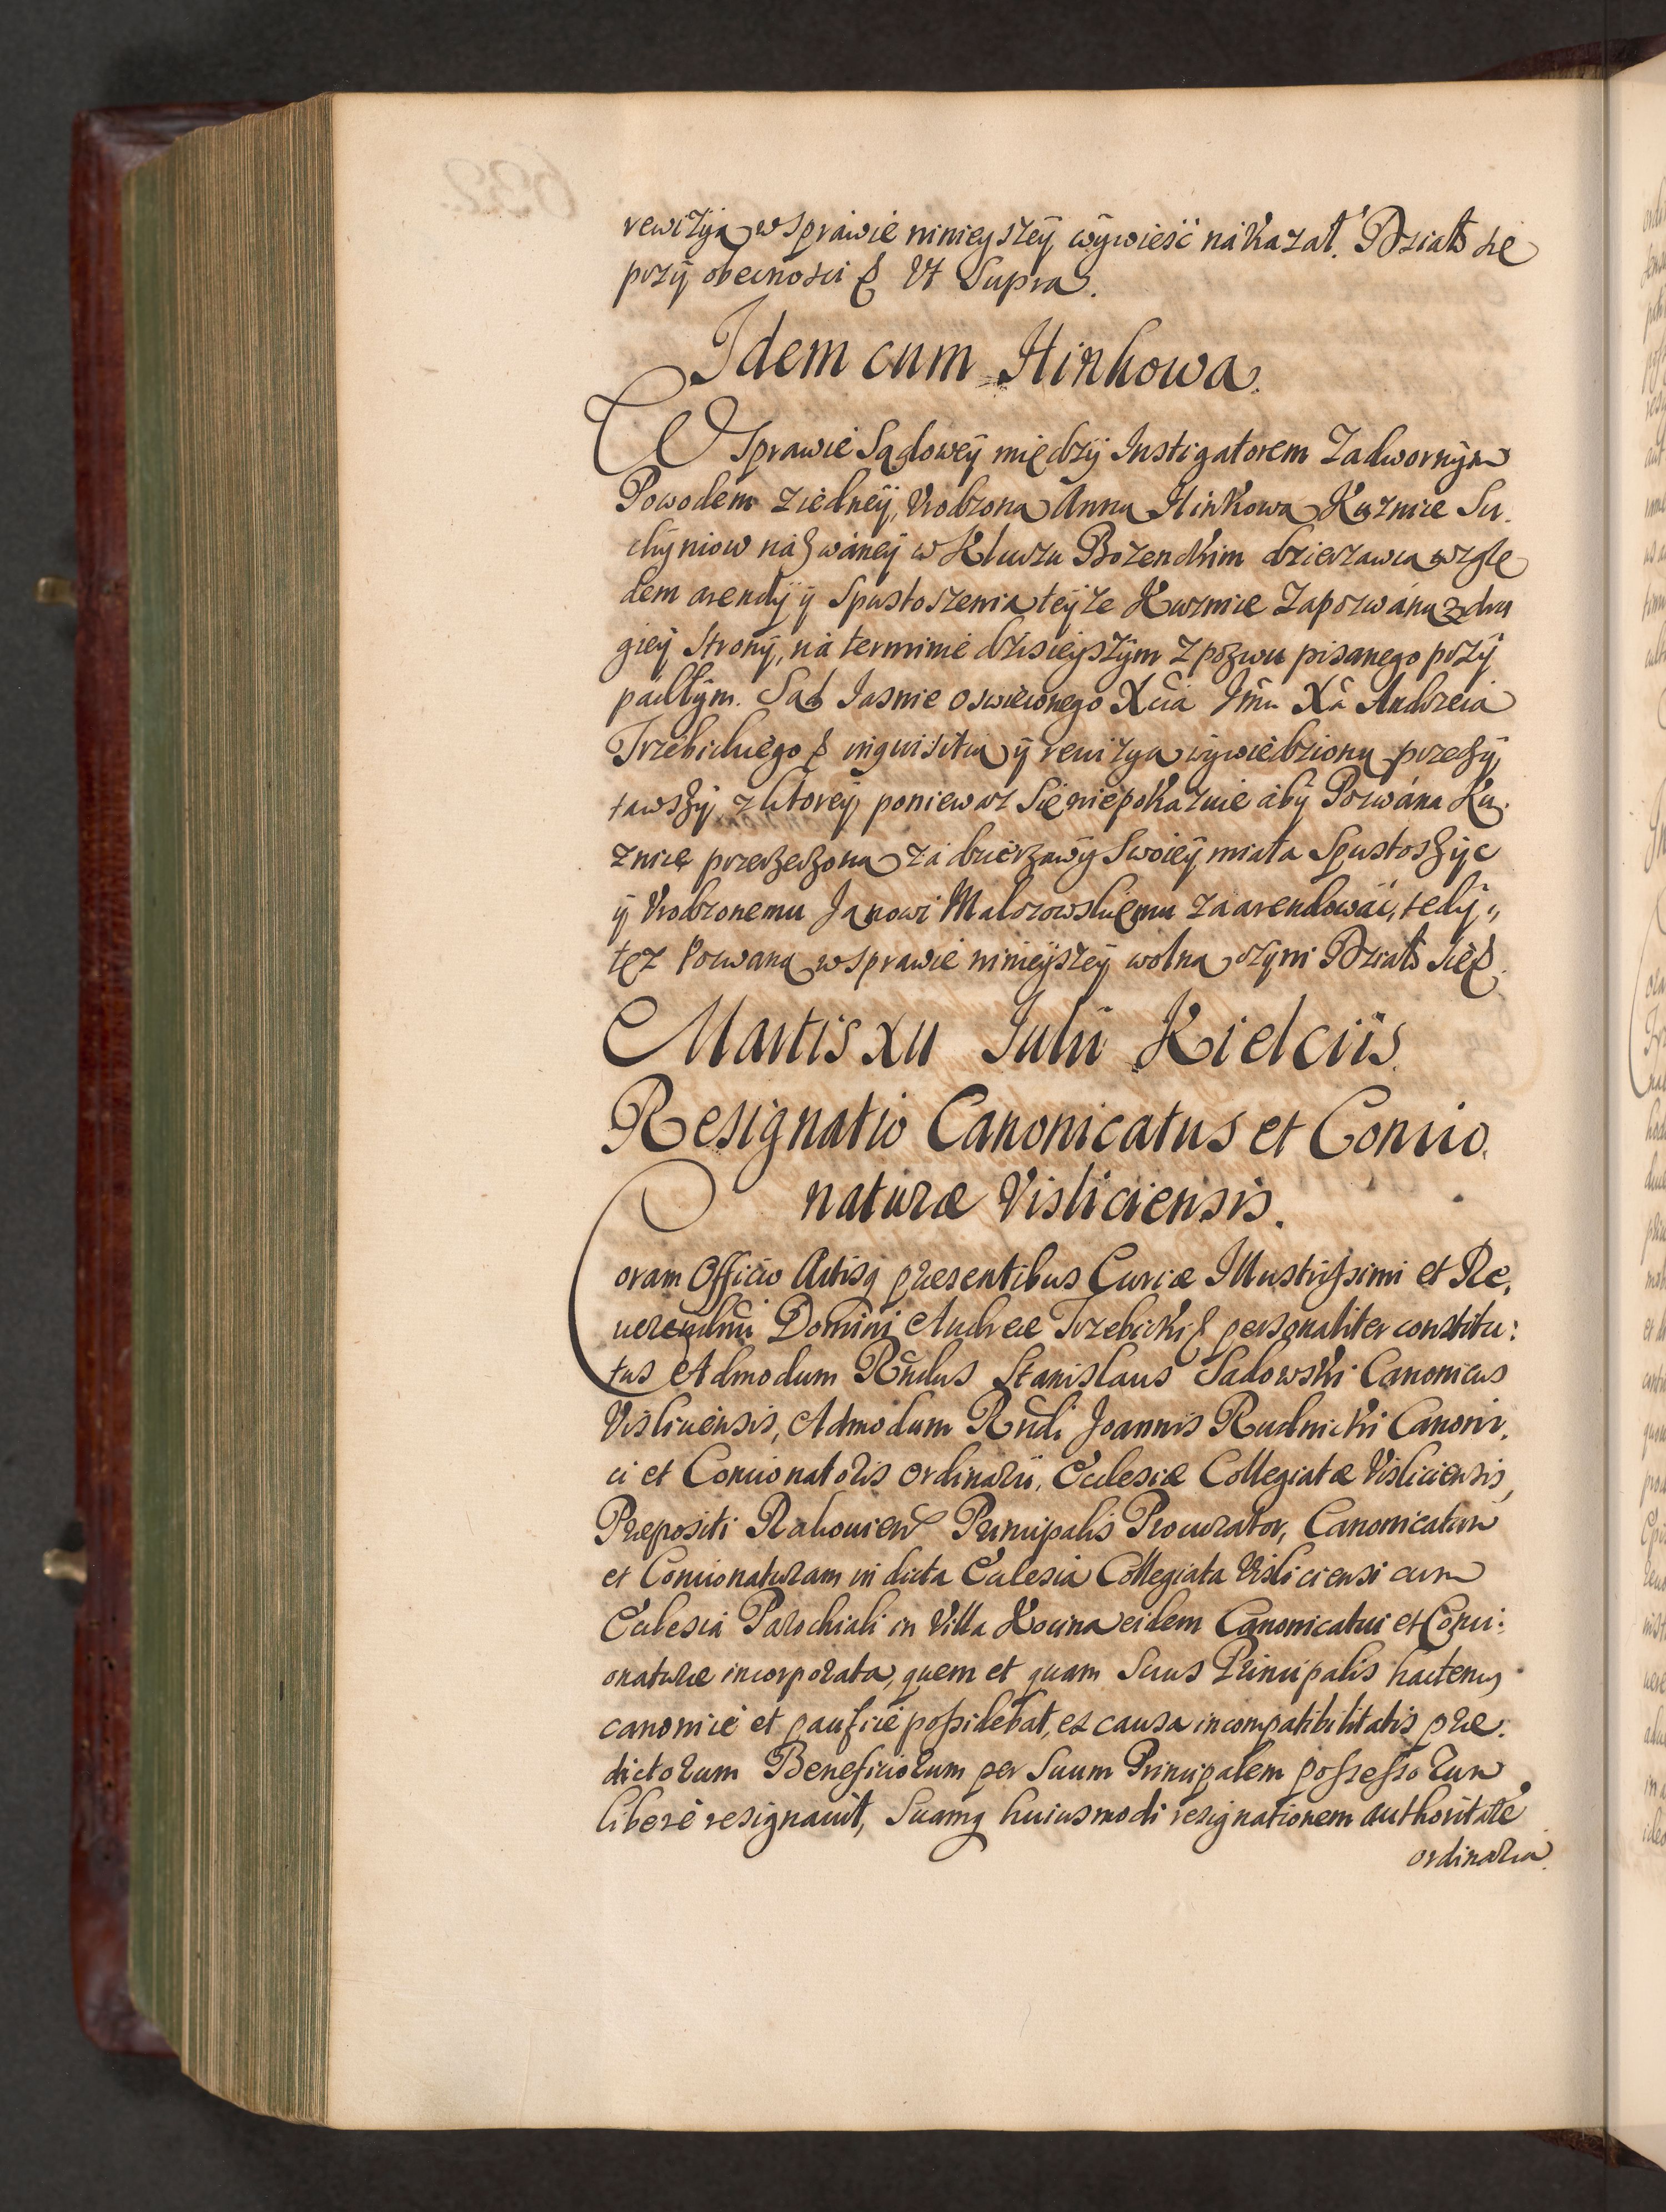 rewizyą w sprawie ninieyszey wywieść nákazał. Działo się
przy obecności & Vt Supra.
Idem cum Hinkowa.
W Sprawie Sądowey między Instigatorem Zadwornym
Powodem z iedney, Vrodzoną Anną Hinkową Kuznice Su-
chyniow názwáney w Kluczu Bozenckim dzierzawcą wzglę
dem arendy y Spustoszenia teyze Kuznice Zapozwáną z dru
giey Strony, ná terminie dzisieyszym z pozwu pisanego przy
padłym. Sąd Jasnie oswieconego Xcia Jmci Xa Andrzeia
Trzebickiego & inquisitią y rewizyą wywiedzioną przeczy,
tawszy, z ktorey, poniewasz się niepokazuie aby Pozwána Ku-
znicę przerzeczoną zá dzierzawy Swoiey miała Spustoszyc
y Vrodzonemu Janowi Malszowskiemu zaarendowáć, tedy,,
tęz Pozwaną w sprawie ninieyszey wolną czyni Działo się &.
Martis XII Julii Kielciis.
Resignatio Canonicatus et Concio,
naturæ Visliciensis.
Coram Officio Actisq præsentibus Curiæ Illustrissimi et Re,
uerendmi Domini Andreæ Trzebicki & personaliter constitu:
tus Admodum Rndus Stanislaus Sadowski Canonicus
Visliciensis, Admodum Rndi Joannis Rudnicki Canoni,
ci et Concionatoris ordinarii, Ecclesiæ Collegiatæ Visliciensis,
Præpositi Rakouien Principalis Procurator, Canonicatum
et Concionaturam in dicta Ecclesia Collegiata Visliciensi cum
Ecclesia Parochiali in Villa Kocina eidem Canonicatui et Conci:
onaturæ incorporata, quem et quam Suus Principalis hactenus
canonicè et pacificè possidebat, ex causa incompatibilitatis præ:
dictorum Beneficiorum per Suum Principalem possessorum
liberè resignauit, Suamq huiusmodi resignationem authoritate
ordinaria